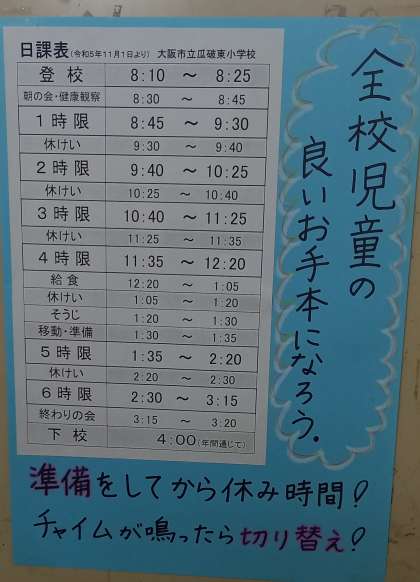 日課表(令和5年11月1日より) 大阪市立瓜破東小学校
登校 8:10 ～ 8:25
朝の会・健康観察 8:30 ～ 8:45
1時限 8:45 ～ 9:30
休けい 9:30 ～ 9:40
2時限 9:40 ～ 10:25
休けい 10:25 ～ 10:40
3時限 10:40 ～ 11:25
休けい 11:25 ～ 11:35
4時限 11:35 ～ 12:20
給食 12:20 ～ 1:05
休けい 1:05 ～ 1:20
そうじ 1:20 ～ 1:30
移動・準備 1:30 ～ 1:35
5時限 1:35 ～ 2:20
休けい 2:20 ～ 2:30
6時限 2:30 ～ 3:15
終わりの会 3:15 ～ 3:20
下校 4:00(年間通じて)
全校児童の
良いお手本になろう.
準備をしてから休み時間!
チャイムが鳴ったら切り替え!